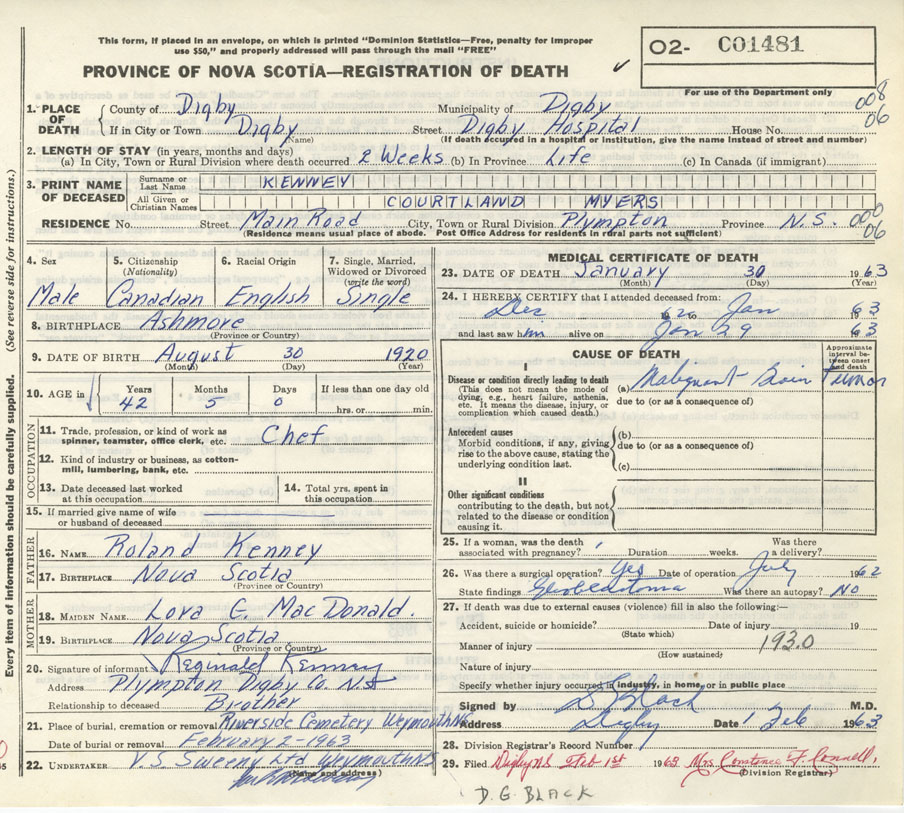 This form, if placed in an envelope, on which is printed "Dominion Statistics—Free, penalty for improper
use $50," and properly addressed will pass through the mail "FREE"
O2- C01481
PROVINCE OF NOVA SCOTIA—REGISTRATION OF DEATH
For use of the Department only
1. PLACE OF DEATH County of Digby Municipality of Digby 008
If in City or Town Digby (Name) Street Digby Hospital House No. 06
(If death occurred in a hospital or institution, give the name instead of street and number)
2. LENGTH OF STAY (in years, months and days)
(a) In City, Town or Rural Division where death occurred 2 Weeks (b) In Province Life (c) In Canada (if immigrant)
3. PRINT NAME OF DECEASED Surname or Last Name KENNEY
All Given or Christian Names COURTLAND MYERS
RESIDENCE No. Street Main Road City, Town or Rural Division Plympton Province N.S. 000
(Residence means usual place of abode. Post Office Address for residents in rural parts not sufficient) 06
4. Sex Male
5. Citizenship (Nationality) Canadian
6. Racial Origin English
7. Single, Married, Widowed or Divorced (write the word) Single
8. BIRTHPLACE Ashmore
(Province or Country)
9. DATE OF BIRTH August 30 1920
(Month) (Day) (Year)
10. AGE in Years 42 Months 5 Days 0 If less than one day old hrs. or min.
OCCUPATION
11. Trade, profession, or kind of work as spinner, teamster, office clerk, etc. Chef
12. Kind of industry or business, as cotton-mill, lumbering, bank, etc.
13. Date deceased last worked at this occupation
14. Total yrs. spent in this occupation
15. If married give name of wife or husband of deceased
FATHER
16. NAME Roland Kenney
17. BIRTHPLACE Nova Scotia
(Province or Country)
MOTHER
18. MAIDEN NAME Lora E. MacDonald.
19. BIRTHPLACE Nova Scotia
(Province or Country)
20. Signature of informant Reginald Kenney
Address Plympton Digby Co. N.S
Relationship to deceased Brother
21. Place of burial, cremation or removal Riverside Cemetery Weymouth NS
Date of burial or removal February 2-1963
22. UNDERTAKER V.S. Sweeny Ltd Weymouth NS
(Name and address)
MEDICAL CERTIFICATE OF DEATH
23. DATE OF DEATH January 30 1963
(Month) (Day) (Year)
24. I HEREBY CERTIFY that I attended deceased from:
Dec 1962 to Jan 63
and last saw him alive on Jan 29 63
CAUSE OF DEATH
Approximate interval between onset and death
I
Disease or condition directly leading to death (a) Malignant Brain Tumor
(This does not mean the mode of dying, e.g., heart failure, asthenia, etc. It means the disease, injury, or complication which caused death.)
due to (or as a consequence of)
Antecedent causes
Morbid conditions, if any, giving rise to the above cause, stating the underlying condition last.
(b)
due to (or as a consequence of)
(c)
II
Other significant conditions
contributing to the death, but not related to the disease or condition causing it.
25. If a woman, was the death associated with pregnancy? Duration weeks. Was there a delivery?
26. Was there a surgical operation? Yes Date of operation July 1962
State findings Was there an autopsy? No
27. If death was due to external causes (violence) fill in also the following:—
Accident, suicide or homicide? Date of injury 19
(State which)
Manner of injury 193.0
(How sustained)
Nature of injury
Specify whether injury occurred in industry, in home, or in public place
Signed by D G Black M.D.
Address Digby Date 1 Feb 1963
28. Division Registrar's Record Number
29. Filed Digby NS Feb 1st 1963 Mrs Constance F. Connell,
(Division Registrar)
D. G. BLACK
Every item of information should be carefully supplied. (See reverse side for instructions.)